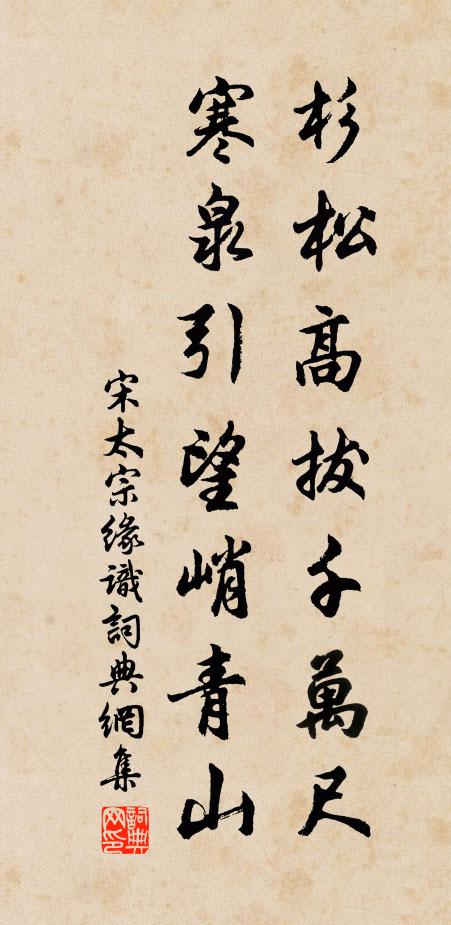 杉松高拔千萬尺
寒泉引望峭青山
宋太宗緣識詞典網集
詞典网印